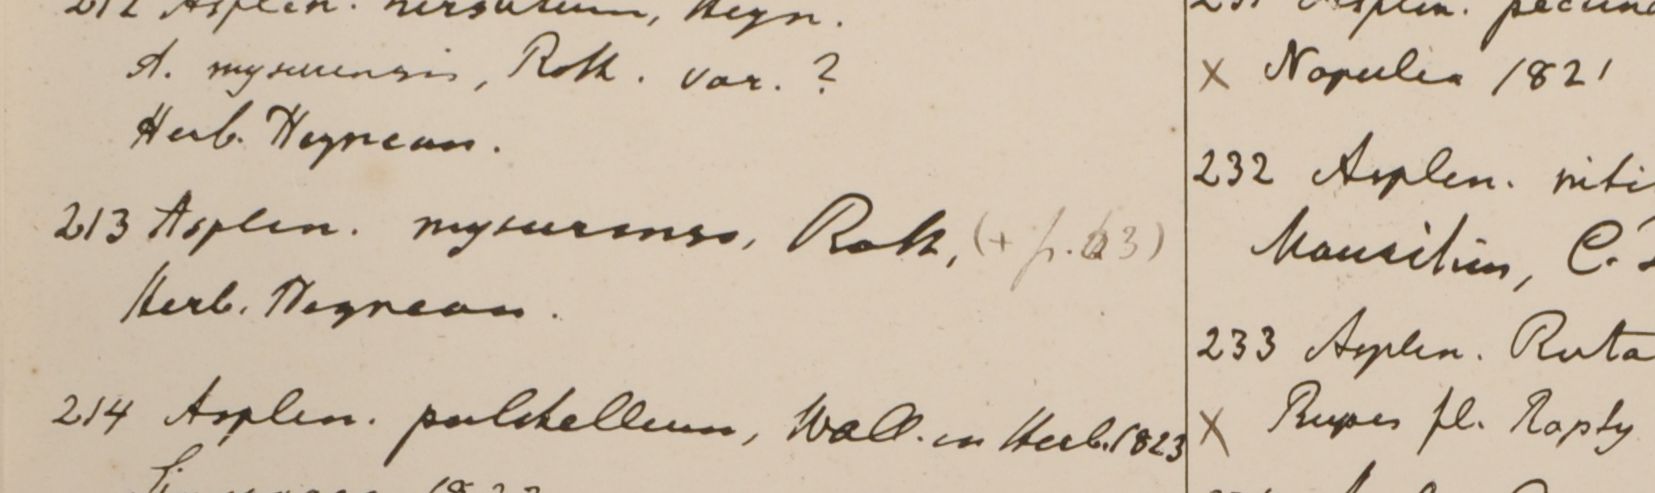 212 Asplen. hirsutum, Heyn.
A. mysurensis, Roth. var. ?
Herb. Heynean.
213 Asplen. mysurense, Roth, (+ p. 63)
Herb. Heynean.
214 Asplen. pulchellum, Wall. in Herb. 1823
Singapore 1822
231 Asplen.
× Napalia 1821
232 Asplen. niti
Mauritius, C.
233 Asplen. Ruta
× Rupes fl. Rapty